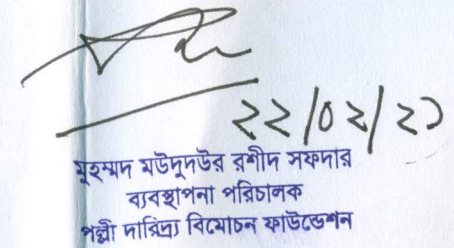 ২২/০২/২১
মুহম্মদ মউদুদউর রশীদ সফদার
ব্যবস্থাপনা পরিচালক
পল্লী দারিদ্র্য বিমোচন ফাউন্ডেশন